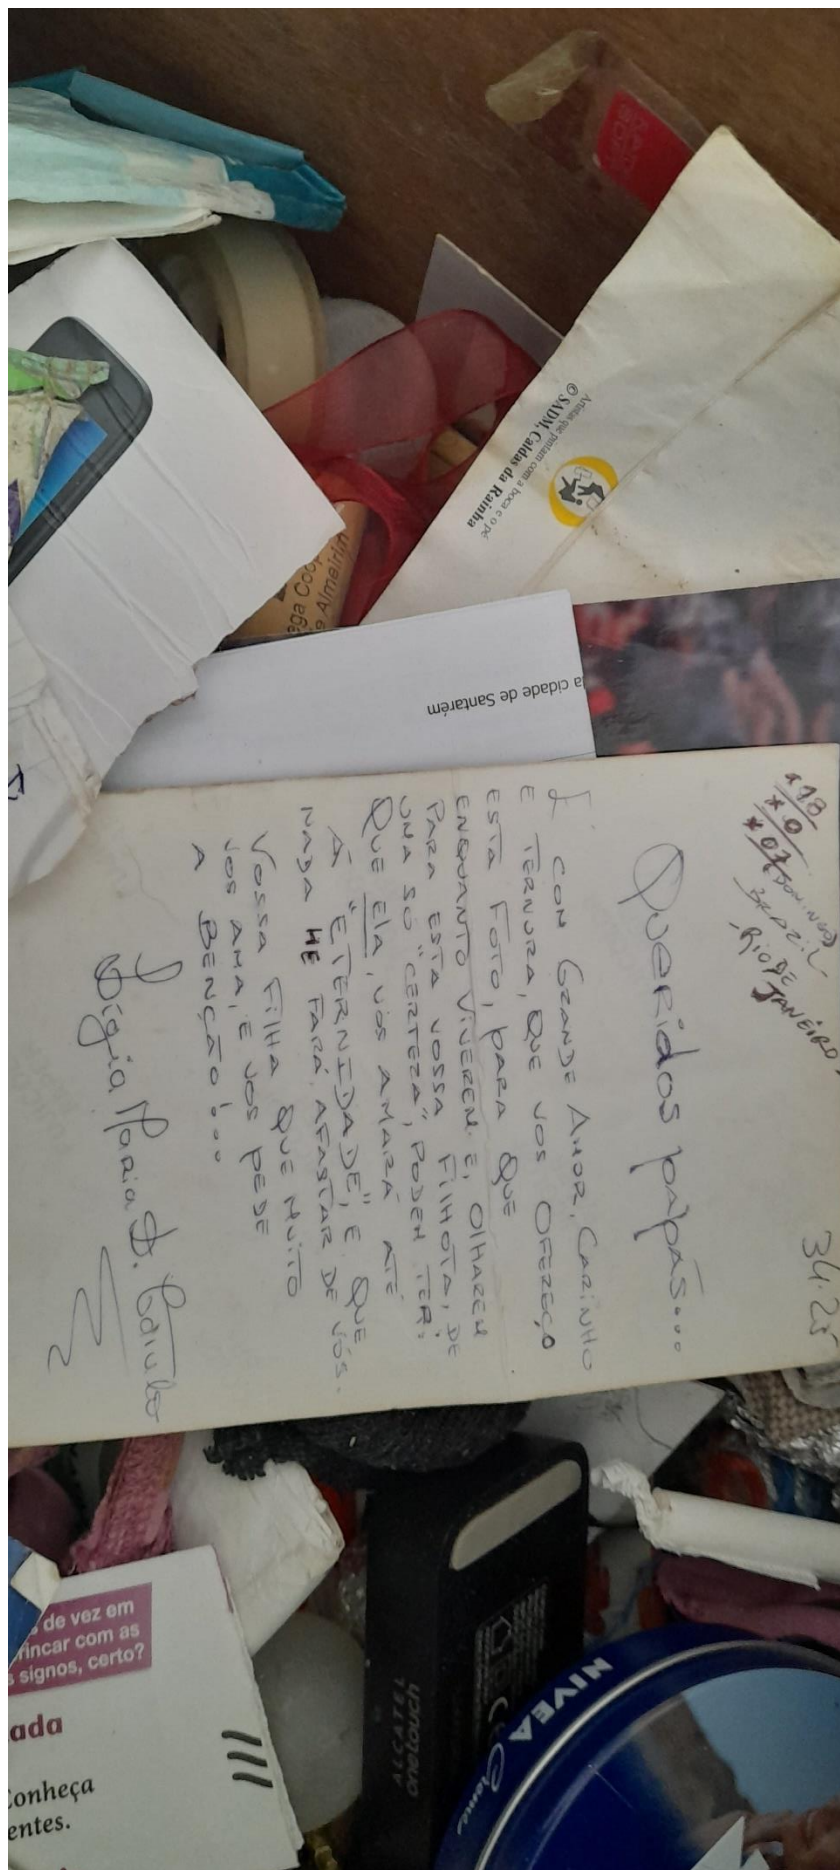 Artistas que pintam com a boca e o pé
© SADM, Caldas da Rainha
ega Coop
e Almeirim
a cidade de Santarém
*18
*0
*07
DOMINGO
BRAZIL
-RIO DE
JANEIRO!
34.25
Queridos papás...
É CON GRANDE AMOR, CARINHO
E TERNURA, QUE VOS OFEREÇO
ESTA FOTO, PARA QUE
ENQUANTO VIVEREM E, OLHAREM
PARA ESTA VOSSA FILHOTA, DE
UMA SÓ "CERTEZA", PODEM TER:
QUE ELA, VOS AMARÁ ATÉ
Á "ETERNIDADE", E QUE
NADA ME FARÁ AFASTAR DE VÓS.
VOSSA FILHA QUE MUITO
VOS AMA, E VOS PEDE
A BENÇÃO!...
Lígia Maria D.
de vez em
rincar com as
signos, certo?
ada
Conheça
entes.
ALCATEL
onetouch
NIVEA
Creme